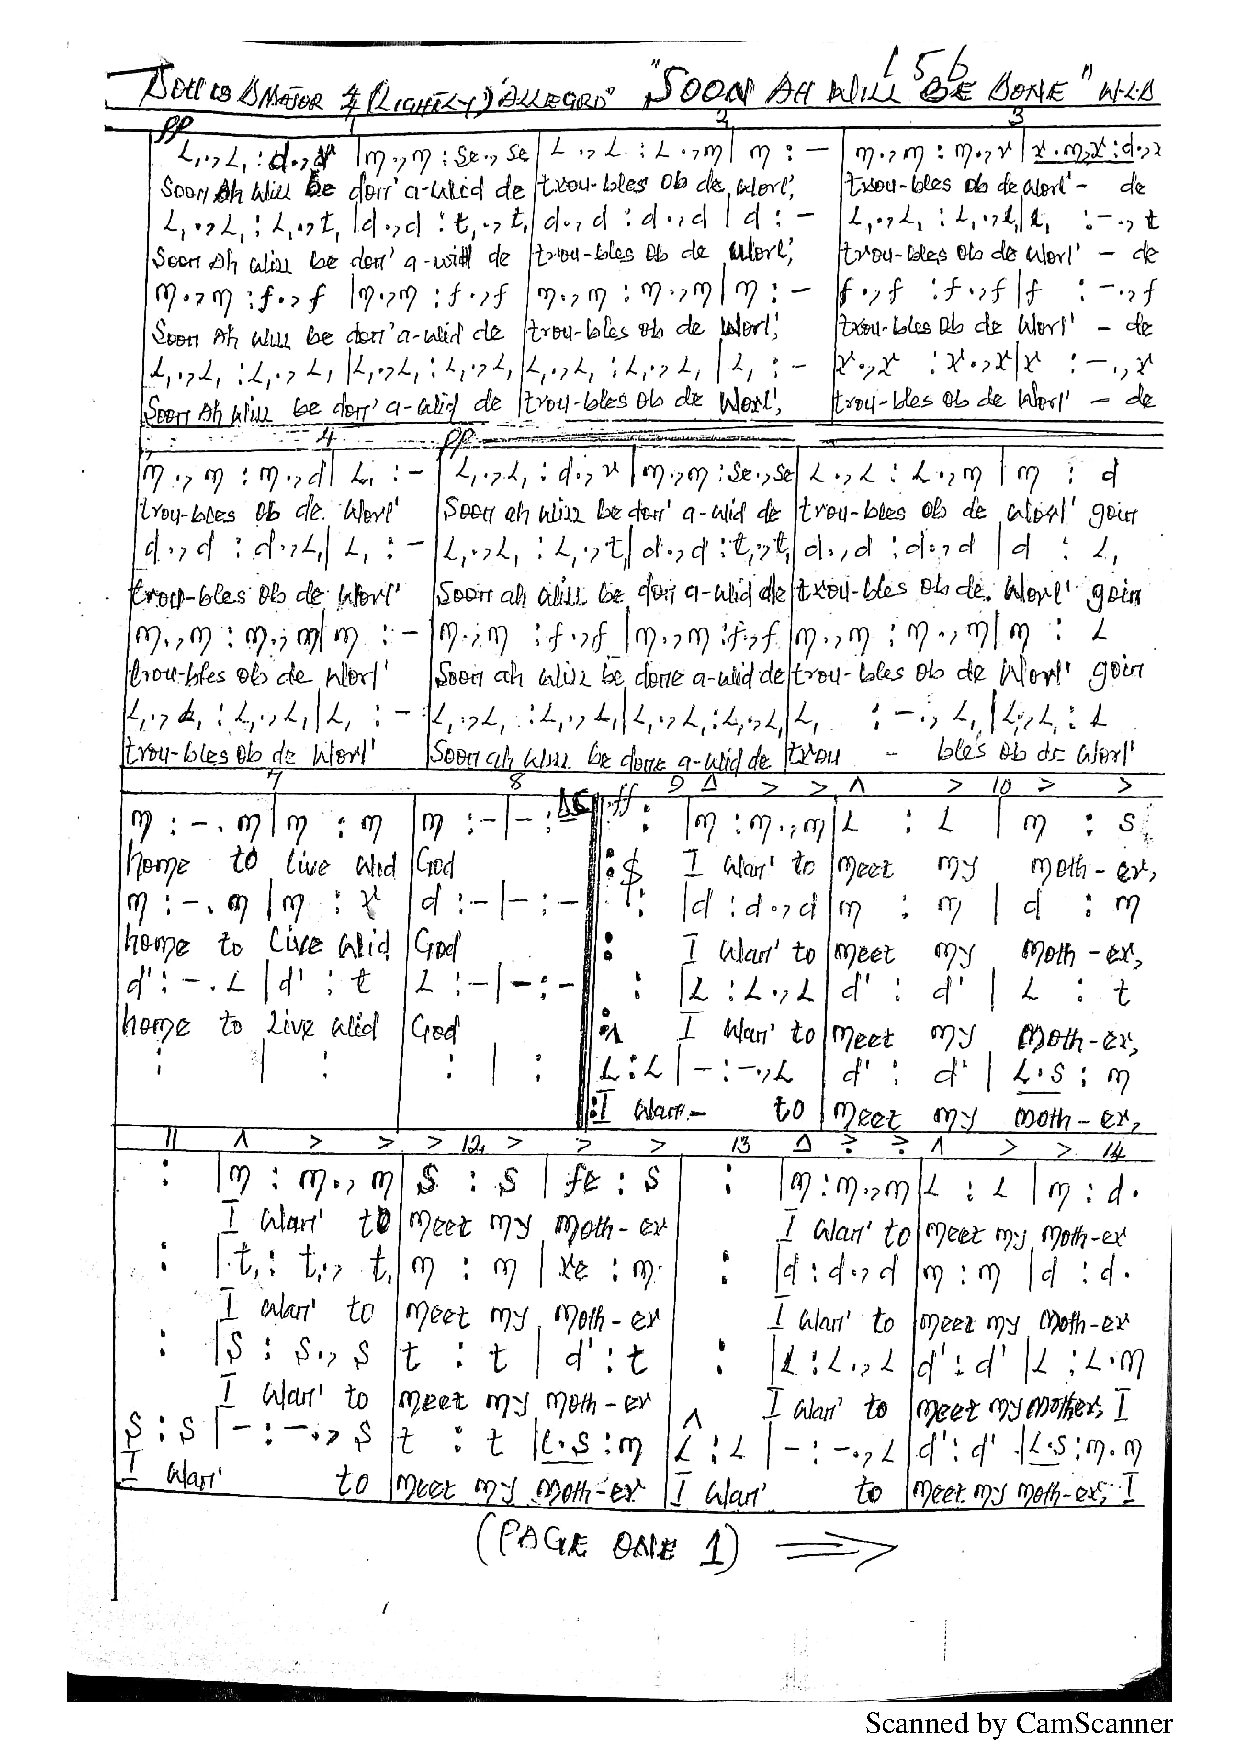 156
DOH IS D MAJOR 4/4 (LIGHTLY) "ALLEGRO" "SOON AH WILL BE DONE" W.L.D
pp 1 2 3
L,.,L, : d.,r | m.,m : se.,se | L.,L : L.,m | m : - | m.,m : m.,r | r.m,r : d.,r
Soon Ah will be don' a-wid de trou-bles ob de worl', trou-bles ob de worl' - de
L,.,L, : L,.,t, | d.,d : t,.,t, | d.,d : d.,d | d : - | L,.,L, : L,.,L, | L, : -.,t
Soon Ah will be don' a-will de trou-bles ob de worl', trou-bles ob de worl' - de
m.,m : f.,f | m.,m : f.,f | m.,m : m.,m | m : - | f.,f : f.,f | f : -.,f
Soon Ah will be don' a-wid de trou-bles ob de worl', trou-bles ob de worl' - de
L,.,L, : L,.,L, | L,.,L, : L,.,L, | L,.,L, : L,.,L, | L, : - | r.,r : r.,r | r : -.,r
Soon Ah will be don' a-wid de trou-bles ob de worl', trou-bles ob de worl' - de
4 pp
m.,m : m.,d | L, : - | L,.,L, : d.,r | m.,m : se.,se | L.,L : L.,m | m : d
trou-bles ob de worl' Soon ah will be don' a-wid de trou-bles ob de worl' goin
d.,d : d.,L, | L, : - | L,.,L, : L,.,t, | d.,d : t,.,t, | d.,d : d.,d | d : L,
trou-bles ob de worl' Soon ah will be don a-wid de trou-bles ob de worl' goin
m.,m : m.,m | m : - | m.,m : f.,f | m.,m : f.,f | m.,m : m.,m | m : L
trou-bles ob de worl' Soon ah will be done a-wid de trou-bles ob de worl' goin
L,.,L, : L,.,L, | L, : - | L,.,L, : L,.,L, | L,.,L, : L,.,L, | L, : -.,L, | L,.,L, : L
trou-bles ob de worl' Soon ah will be done a-wid de trou - bles ob de worl'
7 8 D.C ff 9 Δ > > Λ > 10 > >
m : -.m | m : m | m : - | - : - : | m : m.,m | L : L | m : s
home to live wid God I wan' to meet my moth-er,
m : -.m | m : r | d : - | - : - : | d : d.,d | m : m | d : m
home to live wid God I wan' to meet my moth-er,
d' : -.L | d' : t | L : - | - : - : | L : L.,L | d' : d' | L : t
home to live wid God I wan' to meet my moth-er,
: | : : | : L : L | - : -.,L | d' : d' | L.s : m
I wan- to meet my moth-er,
11 Λ > > > 12 > > > 13 Δ > > Λ > > 14
: | m : m.,m | s : s | fe : s : | m : m.,m | L : L | m : d.
I wan' to meet my moth-er I wan' to meet my moth-er
: | t, : t,.,t, | m : m | re : m. : | d : d.,d | m : m | d : d.
I wan' to meet my moth-er I wan' to meet my moth-er
: | s : s.,s | t : t | d' : t : | L : L.,L | d' : d' | L : L.m
I wan' to meet my moth-er I wan' to meet my mother, I
s : s | - : -.,s | t : t | L.s : m | L : L | - : -.,L | d' : d' | L.s : m.m
I wan' to meet my moth-er I wan' to meet my moth-er, I
(PAGE ONE 1)
Scanned by CamScanner